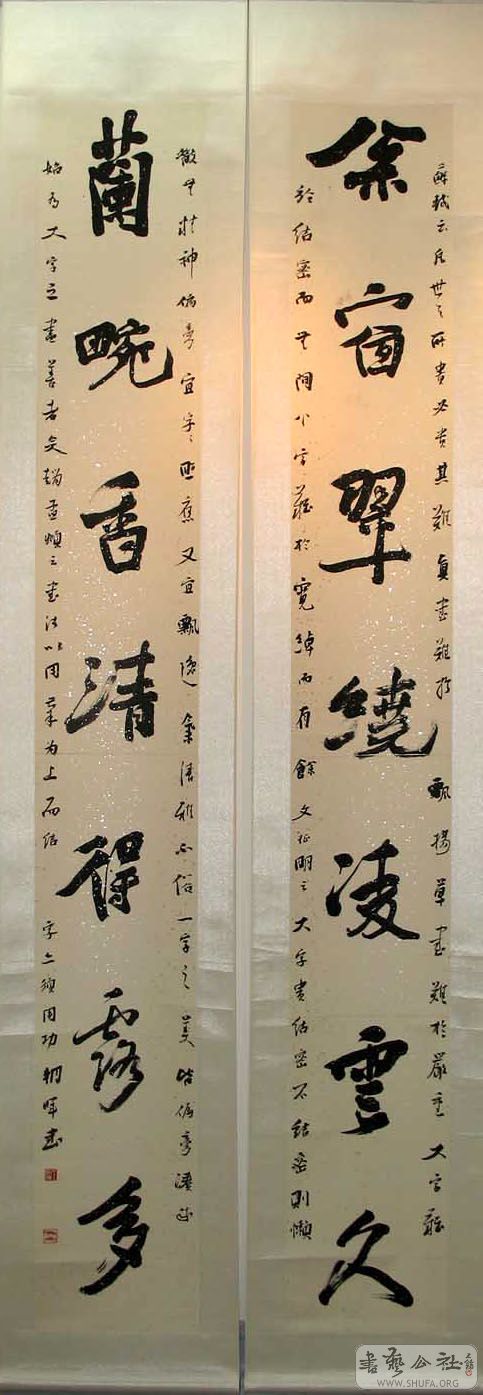 蘇軾云凡世之所貴必貴其難真書難於飄揚草書難於嚴重大字難
余窗翠繞凌雲久
於結密而無間小字難於寬綽而有餘文征明云大字貴結密不結密則懶
散無精神偏旁宜字字照應又宜飄逸氣清雅不俗一字之美皆偏旁湊成
蘭畹香清得露多
始為大字之盡善者矣趙孟頫云書法以用筆為上而結字亦須用功朝暉書
書藝公社
WWW.SHUFA.ORG